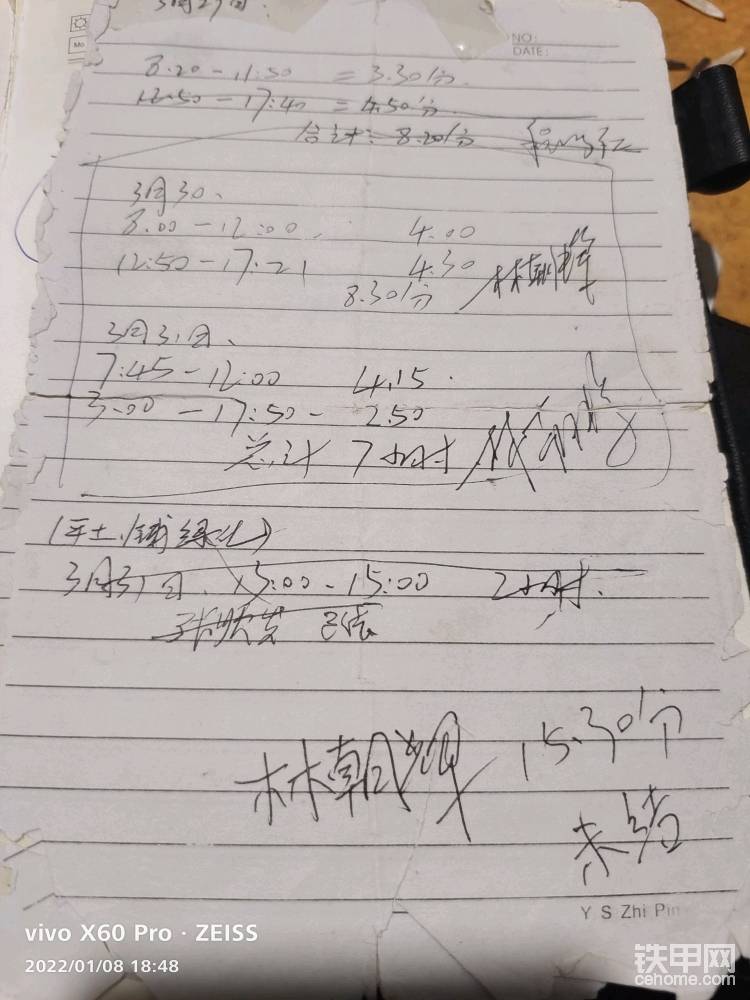 3月29日
NO:
DATE:
8.20-11:50 =3.30分
12.50-17:40 =4.50分
合计:8.20分
3月30、
8.00-12:00. 4.00
12:50-17:21 4.30
8.30分 林朝辉
3月31日、
7:45-12:00 4.15.
3:00-17:50- 2.50
总计 7小时
(平土、铺绿化)
3月31日. 13:00-15:00 2小时.
已结
林朝辉 15.30分
未结
Y S Zhi Pin
vivo X60 Pro · ZEISS
2022/01/08 18:48
铁甲网
cehome.com